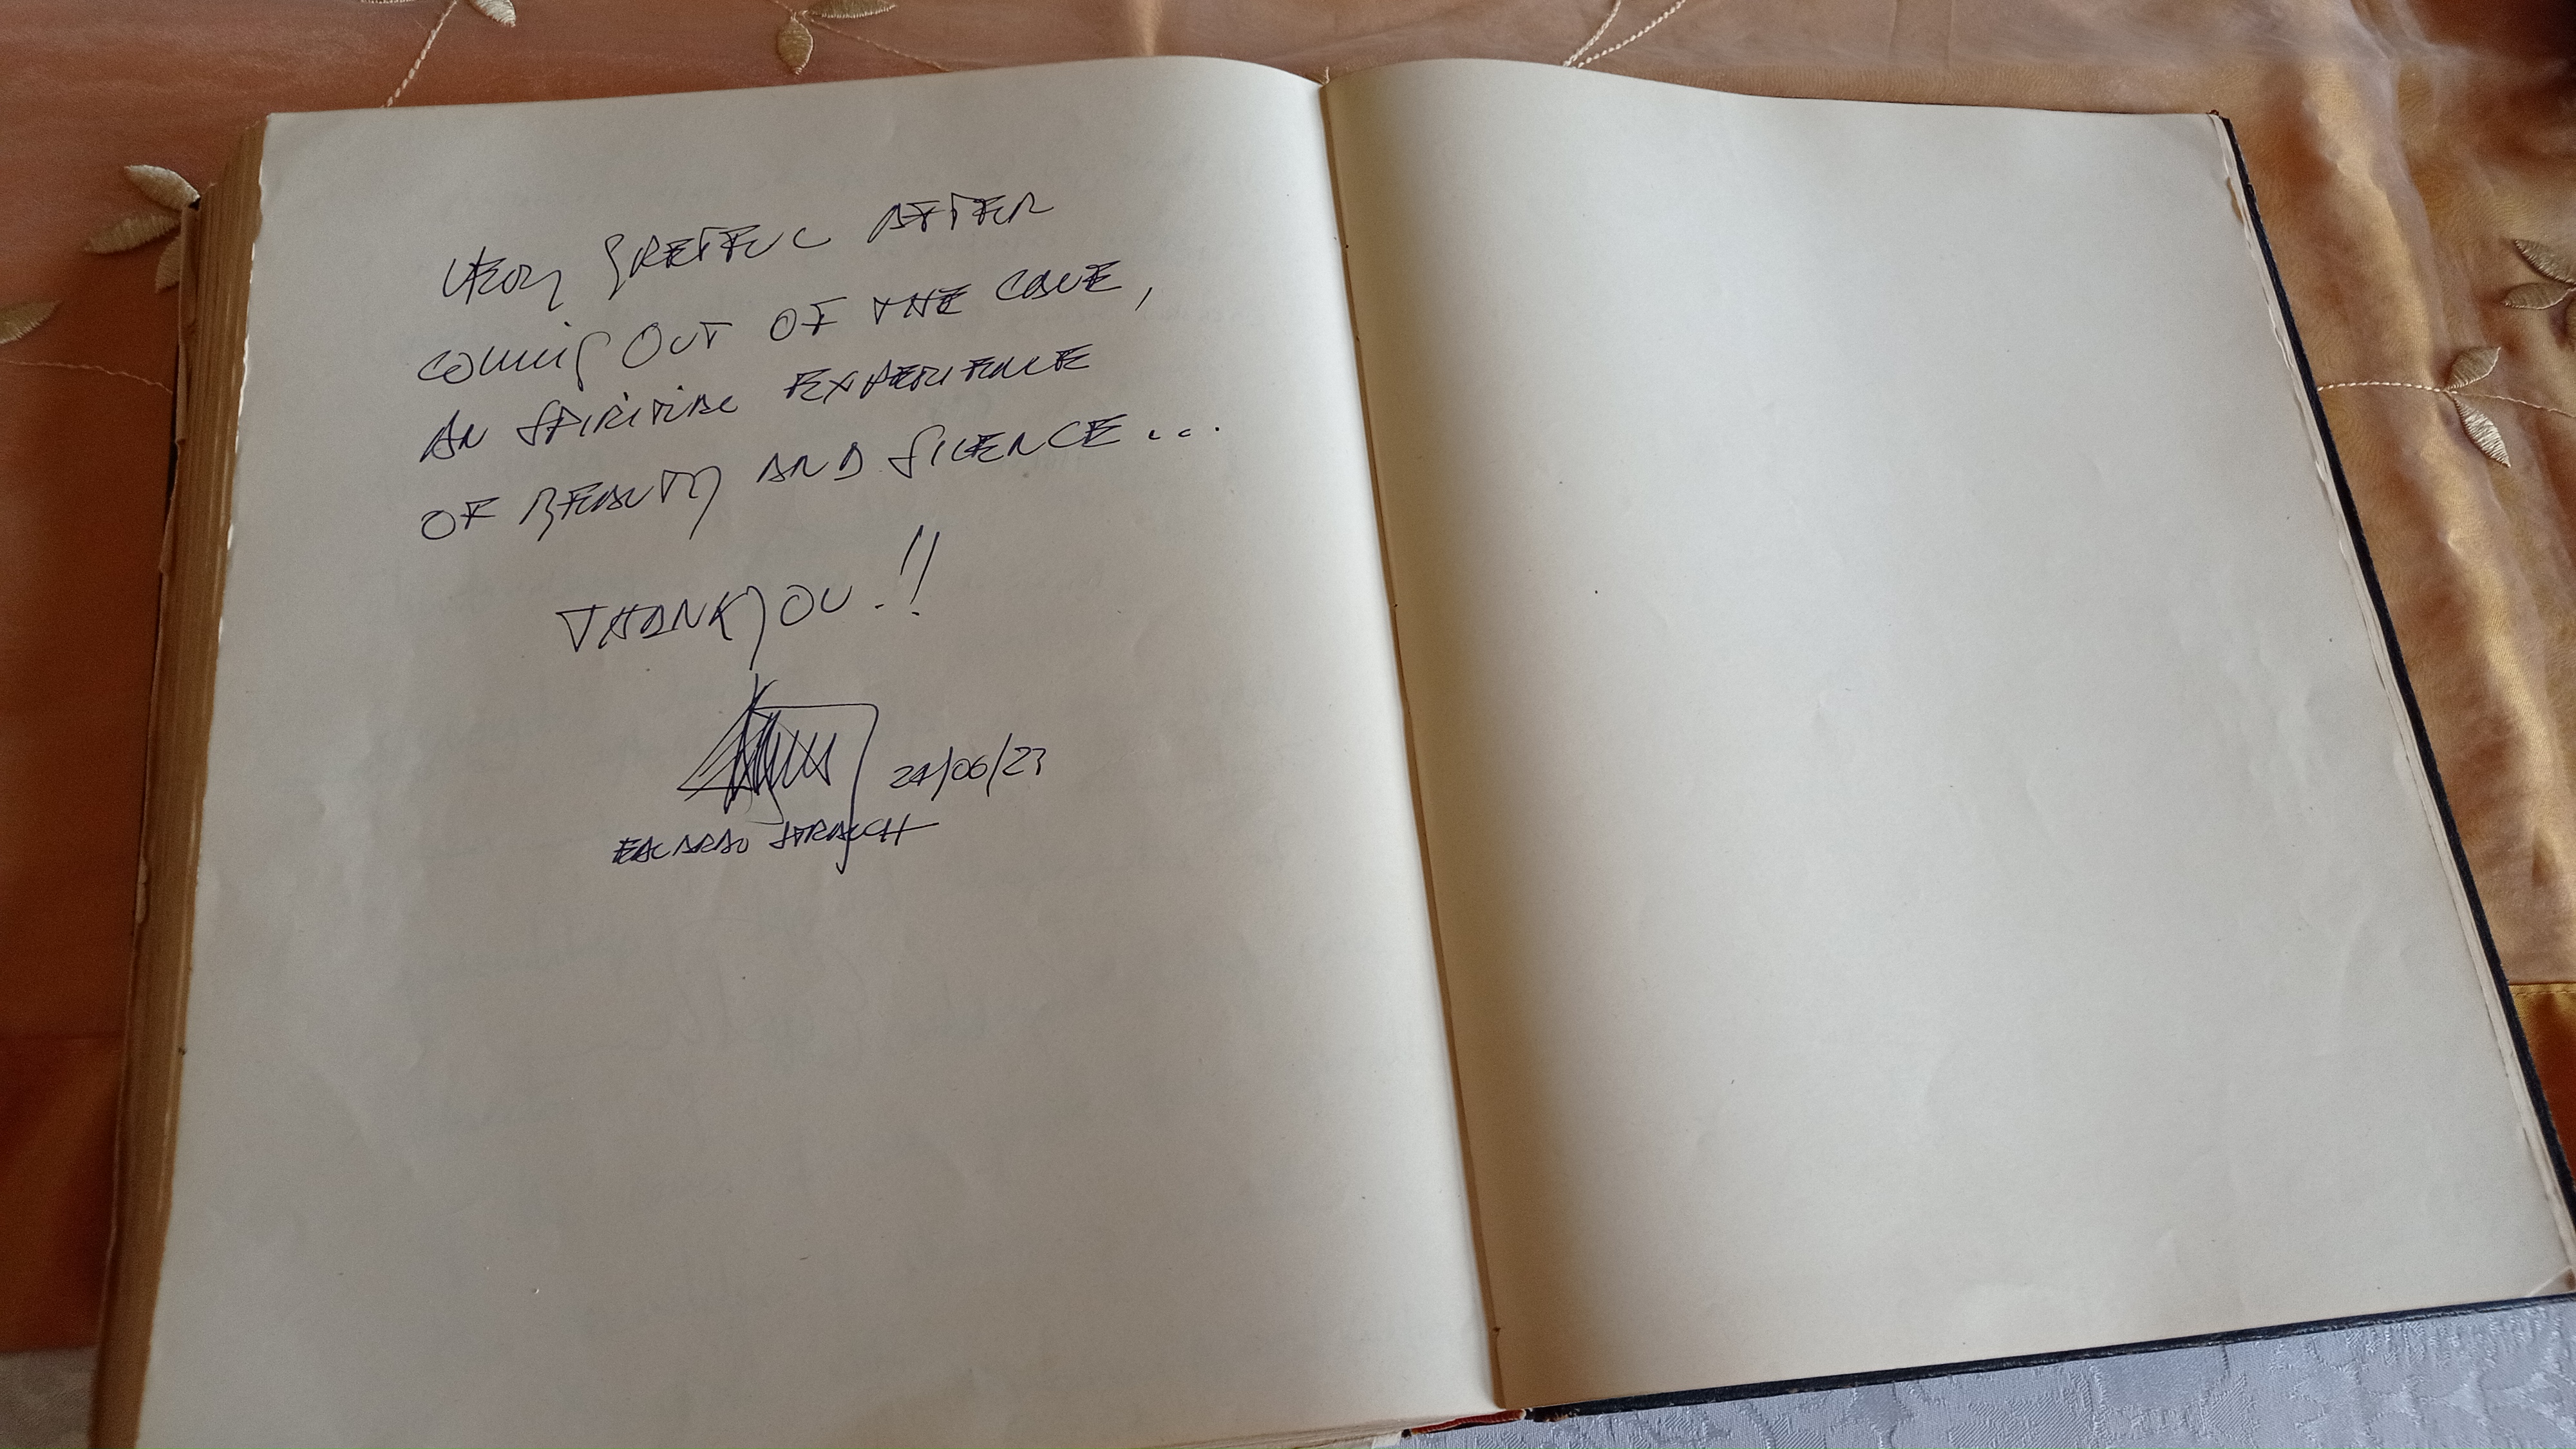 VERY GRETFUL AFTER
COMING OUT OF THE CAVE,
AN SPIRITUAL EXPERIENCE
OF BEAUTY AND SILENCE...
THANK YOU.!!
24/06/23
EDUARDO STRAUCH